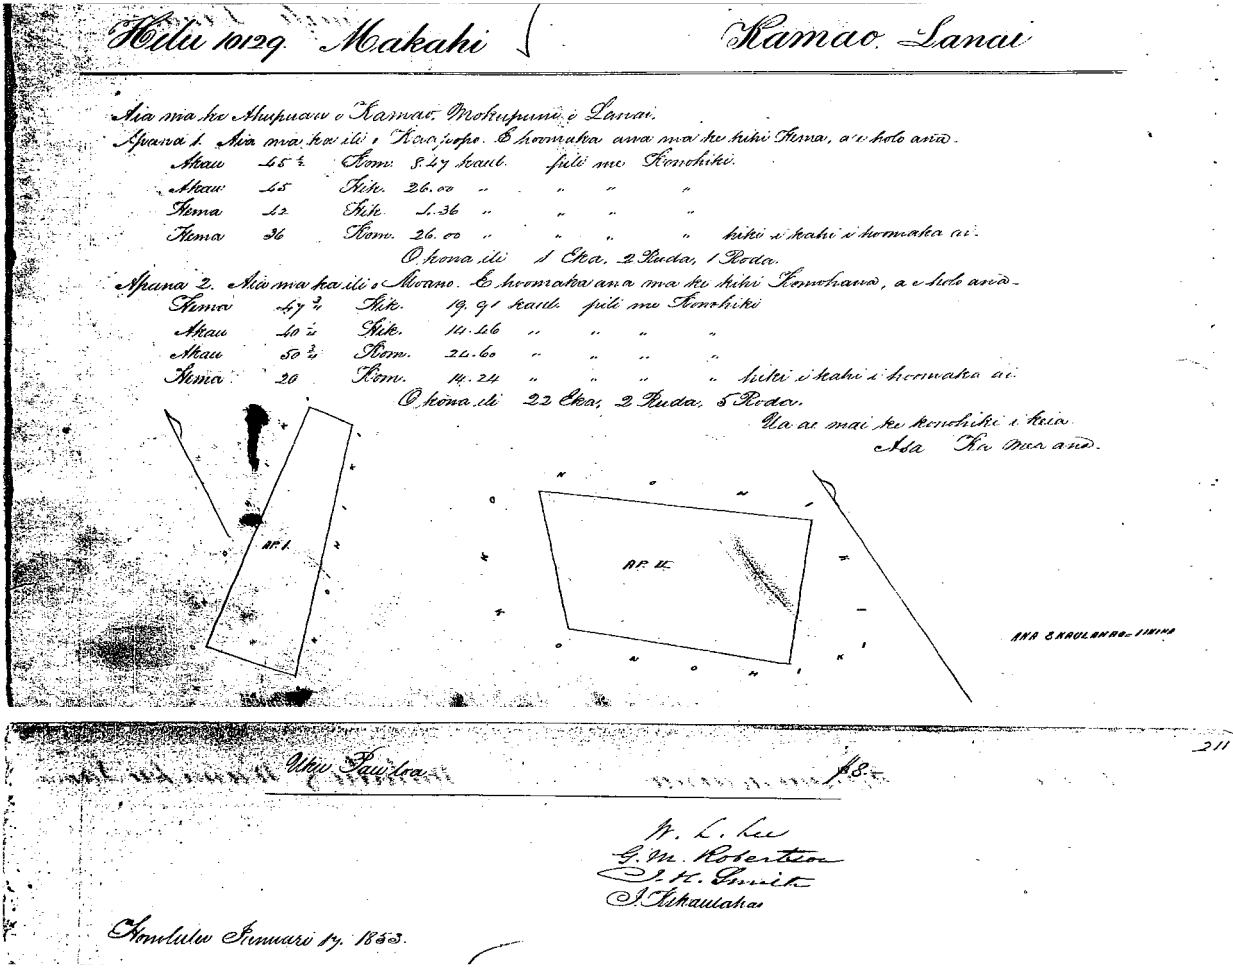 Helu 10129. Makahi Kamao. Lanai
Aia ma ke Ahupuaa o Kamao, Mokupuni o Lanai.
Apana 1. Aia ma ka ili o Kaapopo. E hoomaka ana ma ke kihi Hema, a e holo ana.
Akau 45 ½ Kom. 8.47 kaul. pili me Konohiki.
Akau 45 Hik. 26.00 " " " "
Hema 42 Hik. 4.36 " " " "
Hema 36 Kom. 26.00 " " " " hiki i kahi i hoomaka ai.
O kona ili 1 Eka, 2 Ruda, 1 Roda.
Apana 2. Aia ma ka ili o Moano. E hoomaka ana ma ke kihi Komohana, a e holo ana.
Hema 47 ¾ Hik. 19.91 kaul. pili me Konohiki
Akau 40 Hik. 14.46 " " " "
Akau 50 ¾ Kom. 24.60 " " " "
Hema 20 Kom. 14.24 " " " " hiki i kahi i hoomaka ai.
O kona ili 22 Eka, 2 Ruda, 5 Roda.
Ua ae mai ke konohiki i keia.
Asa Ka mea ana.
AP. I.
AP. II.
K O N O H I K I
K O N O H I K I
ANA E KAULANAO
211
Uku Pau loa $8.-
W. L. Lee
G. M. Robertson
J. H. Smith
J. Kekaulahao
Honolulu Ianuari 17. 1853.